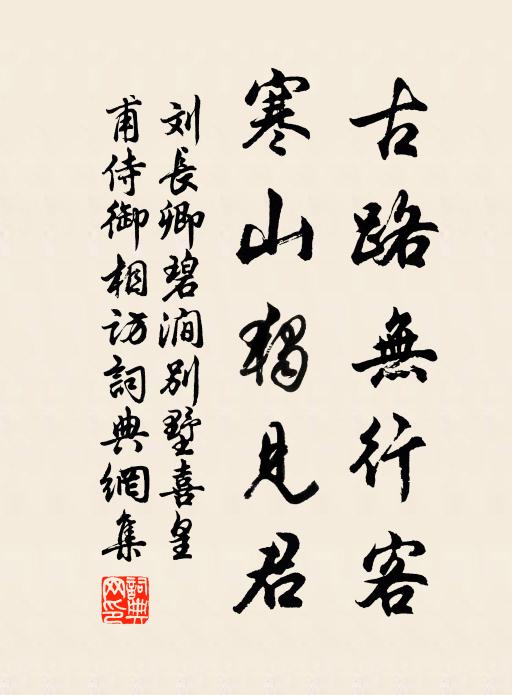 古路無行客
寒山獨見君
刘長卿碧澗别墅喜皇
甫侍御相访詞典網集
詞典
网印